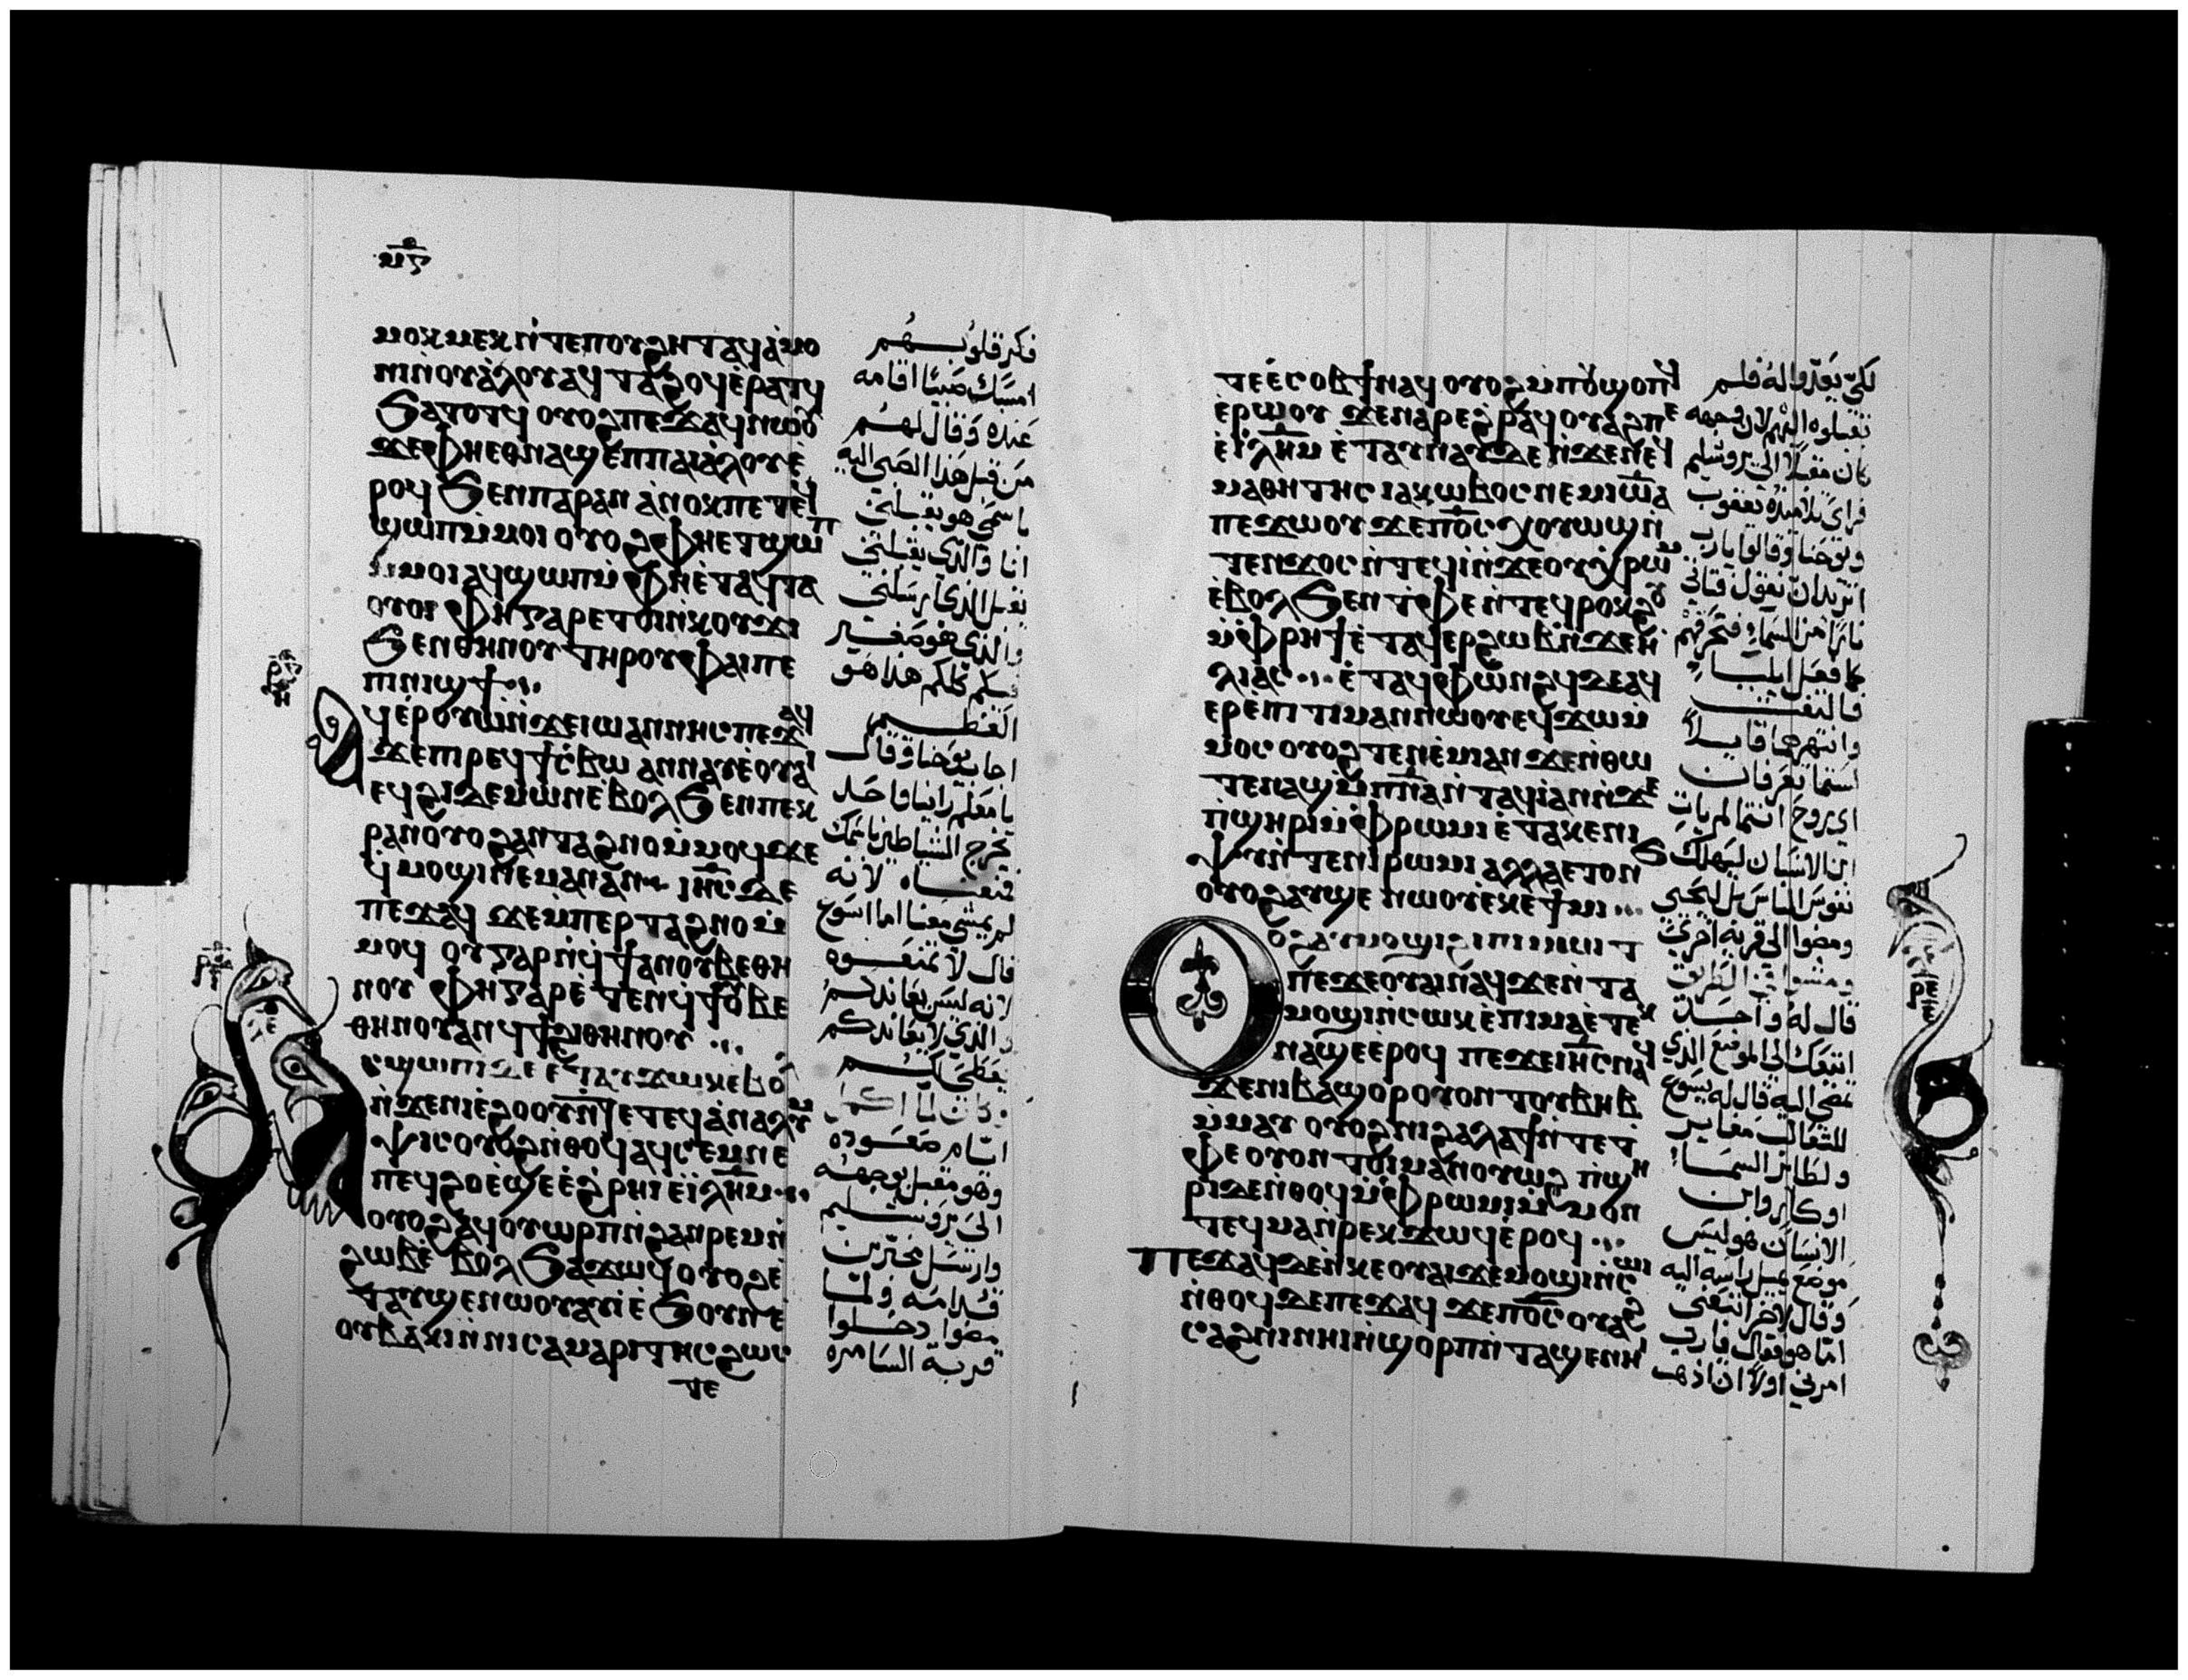 ⲙⲟⲕⲙⲉⲕ ⲛ̀ⲧⲉⲡⲟⲩϩⲏⲧ ⲁϥⲁ̀ⲙⲟ
ⲛⲓ ⲛ̀ⲟⲩⲁ̀ⲗⲟⲩ ⲁϥⲧⲁϩⲟϥ ⲉ̀ⲣⲁⲧϥ
ϧⲁⲧⲟⲧϥ ⲟⲩⲟϩ ⲡⲉϫⲁϥ ⲛⲱⲟⲩ
ϫⲉ ⲫⲏⲉⲑⲛⲁϣⲉⲡ ⲡⲁⲓⲁ̀ⲗⲟⲩ ⲉ̀
ⲣⲟϥ ϧⲉⲛ ⲡⲁⲣⲁⲛ ⲁ̀ⲛⲟⲕ ⲡⲉⲧⲉϥ
ϣⲱⲡ ⲙ̀ⲙⲟⲓ ⲟⲩⲟϩ ⲫⲏⲉⲧϣⲱⲡ
ⲙ̀ⲙⲟⲓ ⲁϥϣⲱⲡ ⲙ̀ⲫⲏⲉ̀ⲧⲁϥⲧⲁ
ⲟⲩⲟⲓ ⲫⲏ ⲅⲁⲣ ⲉⲧⲟⲓ ⲛ̀ⲕⲟⲩϫⲓ
ϧⲉⲛ ⲑⲏⲛⲟⲩ ⲧⲏⲣⲟⲩ ⲫⲁⲓ ⲡⲉ
ⲡⲓⲛⲓϣϯ
ⲁϥⲉⲣⲟⲩⲱ ⲛ̀ϫⲉ ⲓⲱⲁⲛⲛⲏⲥ ⲡⲉϫⲁϥ
ϫⲉ ⲡⲓⲣⲉϥϯⲥⲃⲱ ⲁⲛⲛⲁⲩ ⲉ̀ⲟⲩⲁⲓ
ⲉϥϩⲓ ⲇⲉⲙⲱⲛ ⲉ̀ⲃⲟⲗ ϧⲉⲛ ⲡⲉⲕ
ⲣⲁⲛ ⲟⲩⲟϩ ⲁⲛⲧⲁϩⲛⲟ ⲙ̀ⲙⲟϥ ϫⲉ
ϥ̀ⲙⲟϣⲓ ⲛⲉⲙⲁⲛ ⲁⲛ ⲓⲏⲥ ⲇⲉ
ⲡⲉϫⲁϥ ϫⲉ ⲙ̀ⲡⲉⲣⲧⲁϩⲛⲟ ⲙ̀
ⲙⲟϥ ⲟⲩ ⲅⲁⲣ ⲛ̀ϥ̀ϯ ⲁⲛ ⲟⲩⲃⲉ ⲑⲏ
ⲛⲟⲩ ⲫⲏ ⲅⲁⲣ ⲉ̀ⲧⲉⲛϥ̀ϯ ⲟⲩⲃⲉ
ⲑⲏⲛⲟⲩ ⲁⲛ ϥϯ ϩⲓ ⲑⲏⲛⲟⲩ
ⲥϣⲱⲡⲓ ⲇⲉ ⲉ̀ⲧⲁⲩϫⲱⲕ ⲉ̀ⲃⲟⲗ
ⲛ̀ϫⲉ ⲛⲓⲉ̀ϩⲟⲟⲩ ⲛ̀ⲧⲉ ⲧⲉϥⲁ̀ⲛⲁⲗⲩⲙ
ⲯⲓⲥ ⲟⲩⲟϩ ⲛ̀ⲑⲟϥ ⲁϥⲥⲉⲙⲛⲉ
ⲡⲉϥϩⲟ ⲉ̀ϣⲉ ⲉ̀ϩ̀ⲣⲏⲓ ⲉ̀ⲓⲗⲏⲙ
ⲟⲩⲟϩ ⲁϥⲟⲩⲱⲣⲡ ⲛ̀ϩⲁⲛⲣⲉⲙⲛ̀
ϩⲱⲃ ⲉ̀ⲃⲟⲗ ϧⲁϫⲱϥ ⲟⲩⲟϩ ⲉ̀
ⲧⲁⲩϣⲉ ⲛⲱⲟⲩ ⲁⲩⲓ ⲉ̀ϧⲟⲩⲛ ⲉ̀
ⲟⲩⲃⲁⲕⲓ ⲛ̀ⲛⲓⲥⲁⲙⲁⲣⲓⲧⲏⲥ ϩⲱⲥ
ⲧⲉ
فكر قلوبهم
امسك صبيا اقامه
عنده وقال لهم
من قبل هذا الصبي اليه
باسمي هو يقبلني
انا والذي يقبلني
يقبل الذي ارسلني
والذي هو صغير
فيكم كلكم هذا هو
العظيم
اجاب يوحنا وقال
يا معلم راينا واحد
يخرج الشياطين باسمك
فمنعناه لانه
لم يمشي معنا اما ايسوع
قال لا تمنعوه
لانه ليس يعاندكم
والذي لا يعاندكم
يعطيكم
وكان لما اكمل
ايام صعوده
وهو مقبل بوجهه
الى يروشليم
وارسل مخبرين
قدامه ولما
مضوا دخلوا
قرية السامره
ⲧⲉ ⲉ̀ⲥⲟⲃϯ ⲛⲁϥ ⲟⲩⲟϩ ⲙ̀ⲡⲟⲩϣⲟⲡϥ
ⲉ̀ⲣⲱⲟⲩ ϫⲉ ⲛⲁⲣⲉ ϩⲣⲁϥ ⲟⲩⲁϩ ⲡⲉ
ⲉ̀ⲓⲗⲏⲙ ⲉ̀ⲧⲁⲩⲛⲁⲩ ⲇⲉ ⲛ̀ϫⲉ ⲛⲉϥ
ⲙⲁⲑⲏⲧⲏⲥ ⲓⲁⲕⲱⲃⲟⲥ ⲛⲉⲙ ⲓⲱⲁ
ⲡⲉϫⲱⲟⲩ ϫⲉ ⲡⲟⲥ ⲭⲟⲩⲱϣ ⲛ̀
ⲧⲉⲛϫⲟⲥ ⲛ̀ⲧⲉϥⲓ̀ ⲛ̀ϫⲉ ⲟⲩⲭ̀ⲣⲱⲙ
ⲉ̀ⲃⲟⲗ ϧⲉⲛ ⲧⲫⲉ ⲛ̀ⲧⲉϥⲣⲟⲕϩⲟⲩ
ⲙ̀ⲫ̀ⲣⲏϯ ⲉ̀ⲧⲁϥⲉⲣϩⲱⲃ ⲛ̀ϫⲉ ⲏ
ⲗⲓⲁⲥ ⲉ̀ⲧⲁϥⲫⲱⲛϩϥ ⲇⲉ ⲁϥ
ⲉⲣⲉ̀ⲡⲓⲧⲓⲙⲁⲛ ⲛⲱⲟⲩ ⲉϥϫⲱ ⲙ̀
ⲙⲟⲥ ⲟⲩⲟϩ ⲧⲉⲛⲉ̀ⲙⲓ ⲁⲛ ϫⲉ ⲛ̀ⲑⲱ
ⲧⲉⲛ ⲁϣ ⲙ̀ⲡⲛⲁ ⲛ̀ⲧⲁϥⲓ̀ ⲁⲛ ⲛ̀ϫⲉ
ⲡ̀ϣⲏⲣⲓ ⲙ̀ⲫ̀ⲣⲱⲙⲓ ⲉ̀ⲧⲁⲕⲉ ⲛⲓ
ⲯⲩ ⲛ̀ⲧⲉ ⲛⲓⲣⲱⲙⲓ ⲁⲗⲗⲁ ⲉ̀ⲧⲟⲛϧ
ⲟⲩⲟϩ ⲁⲩϣⲉ ⲛⲱⲟⲩ ⲉ̀ⲕⲉϯⲙⲓ
ⲟⲩⲟϩ ⲁⲩⲙⲟϣⲓ ϩⲓ ⲡⲓⲙⲱⲓⲧ
ⲡⲉϫⲉ ⲟⲩⲁⲓ ⲛⲁϥ ϫⲉ ⲛ̀ⲧⲁ
ⲙⲟϣⲓ ⲛ̀ⲥⲱⲕ ⲉ̀ⲡⲓⲙⲁ ⲉ̀ⲧⲉⲕ
ⲛⲁϣⲉ ⲉ̀ⲣⲟϥ ⲡⲉϫⲉ ⲓⲏⲥ ⲛⲁϥ
ϫⲉ ⲛⲓⲃⲁϣⲟⲣ ⲟⲩⲟⲛⲧⲟⲩ ⲃⲏⲃ
ⲙ̀ⲙⲁⲩ ⲟⲩⲟϩ ⲛⲓϩⲁⲗⲁϯ ⲛ̀ⲧⲉ ⲧ
ⲫⲉ ⲟⲩⲟⲛⲧⲟⲩ ⲙⲁⲛ̀ⲟⲩⲱϩ ⲡ̀ϣⲏ
ⲣⲓ ⲇⲉ ⲛ̀ⲑⲟϥ ⲙ̀ⲫ̀ⲣⲱⲙⲓ ⲙ̀ⲙⲟⲛ
ⲧⲉϥ ⲙⲁⲛ̀ⲣⲉⲕ ϫⲱϥ ⲉ̀ⲣⲟϥ
ⲡⲉϫⲁϥ ⲇⲉ ⲛ̀ⲕⲉⲟⲩⲁⲓ ϫⲉ ⲙⲟϣⲓ ⲛ̀ⲥⲱⲓ
ⲛ̀ⲑⲟϥ ⲇⲉ ⲡⲉϫⲁϥ ϫⲉ ⲡⲟⲥ ⲟⲩⲁϩ
ⲥⲁϩⲛⲓ ⲛⲏⲓ ⲛ̀ϣⲟⲣⲡ ⲛ̀ⲧⲁϣⲉ ⲛⲏⲓ
لكي يعدوا له فلم
يقبلوه اليهم لان وجهه
كان مقبلا الى يروشليم
فراي تلاميذه يعقوب
ويوحنا وقالوا يارب
اتريد ان نقول فتاتي
نارا من السماء فتحرقهم
كما فعل ايليا
فالتفت
وانتهرهما قايلا
لستما تعرفان
اي روح انتما لم يات
ابن الانسان ليهلك
نفوس الناس بل ليحيي
ومضوا الى قرية اخري
ومشوا في الطريق
قال له واحد
اتبعك الى الموضع الذي
تمضي اليه قال له يسوع
للثعالب مغاير
ولطائر السما
اوكار وابن
الانسان هو ليس
موضع يميل راسه اليه
وقال لاخر اتبعني
اما هو فقال يارب
امرني اولا ان اذهب